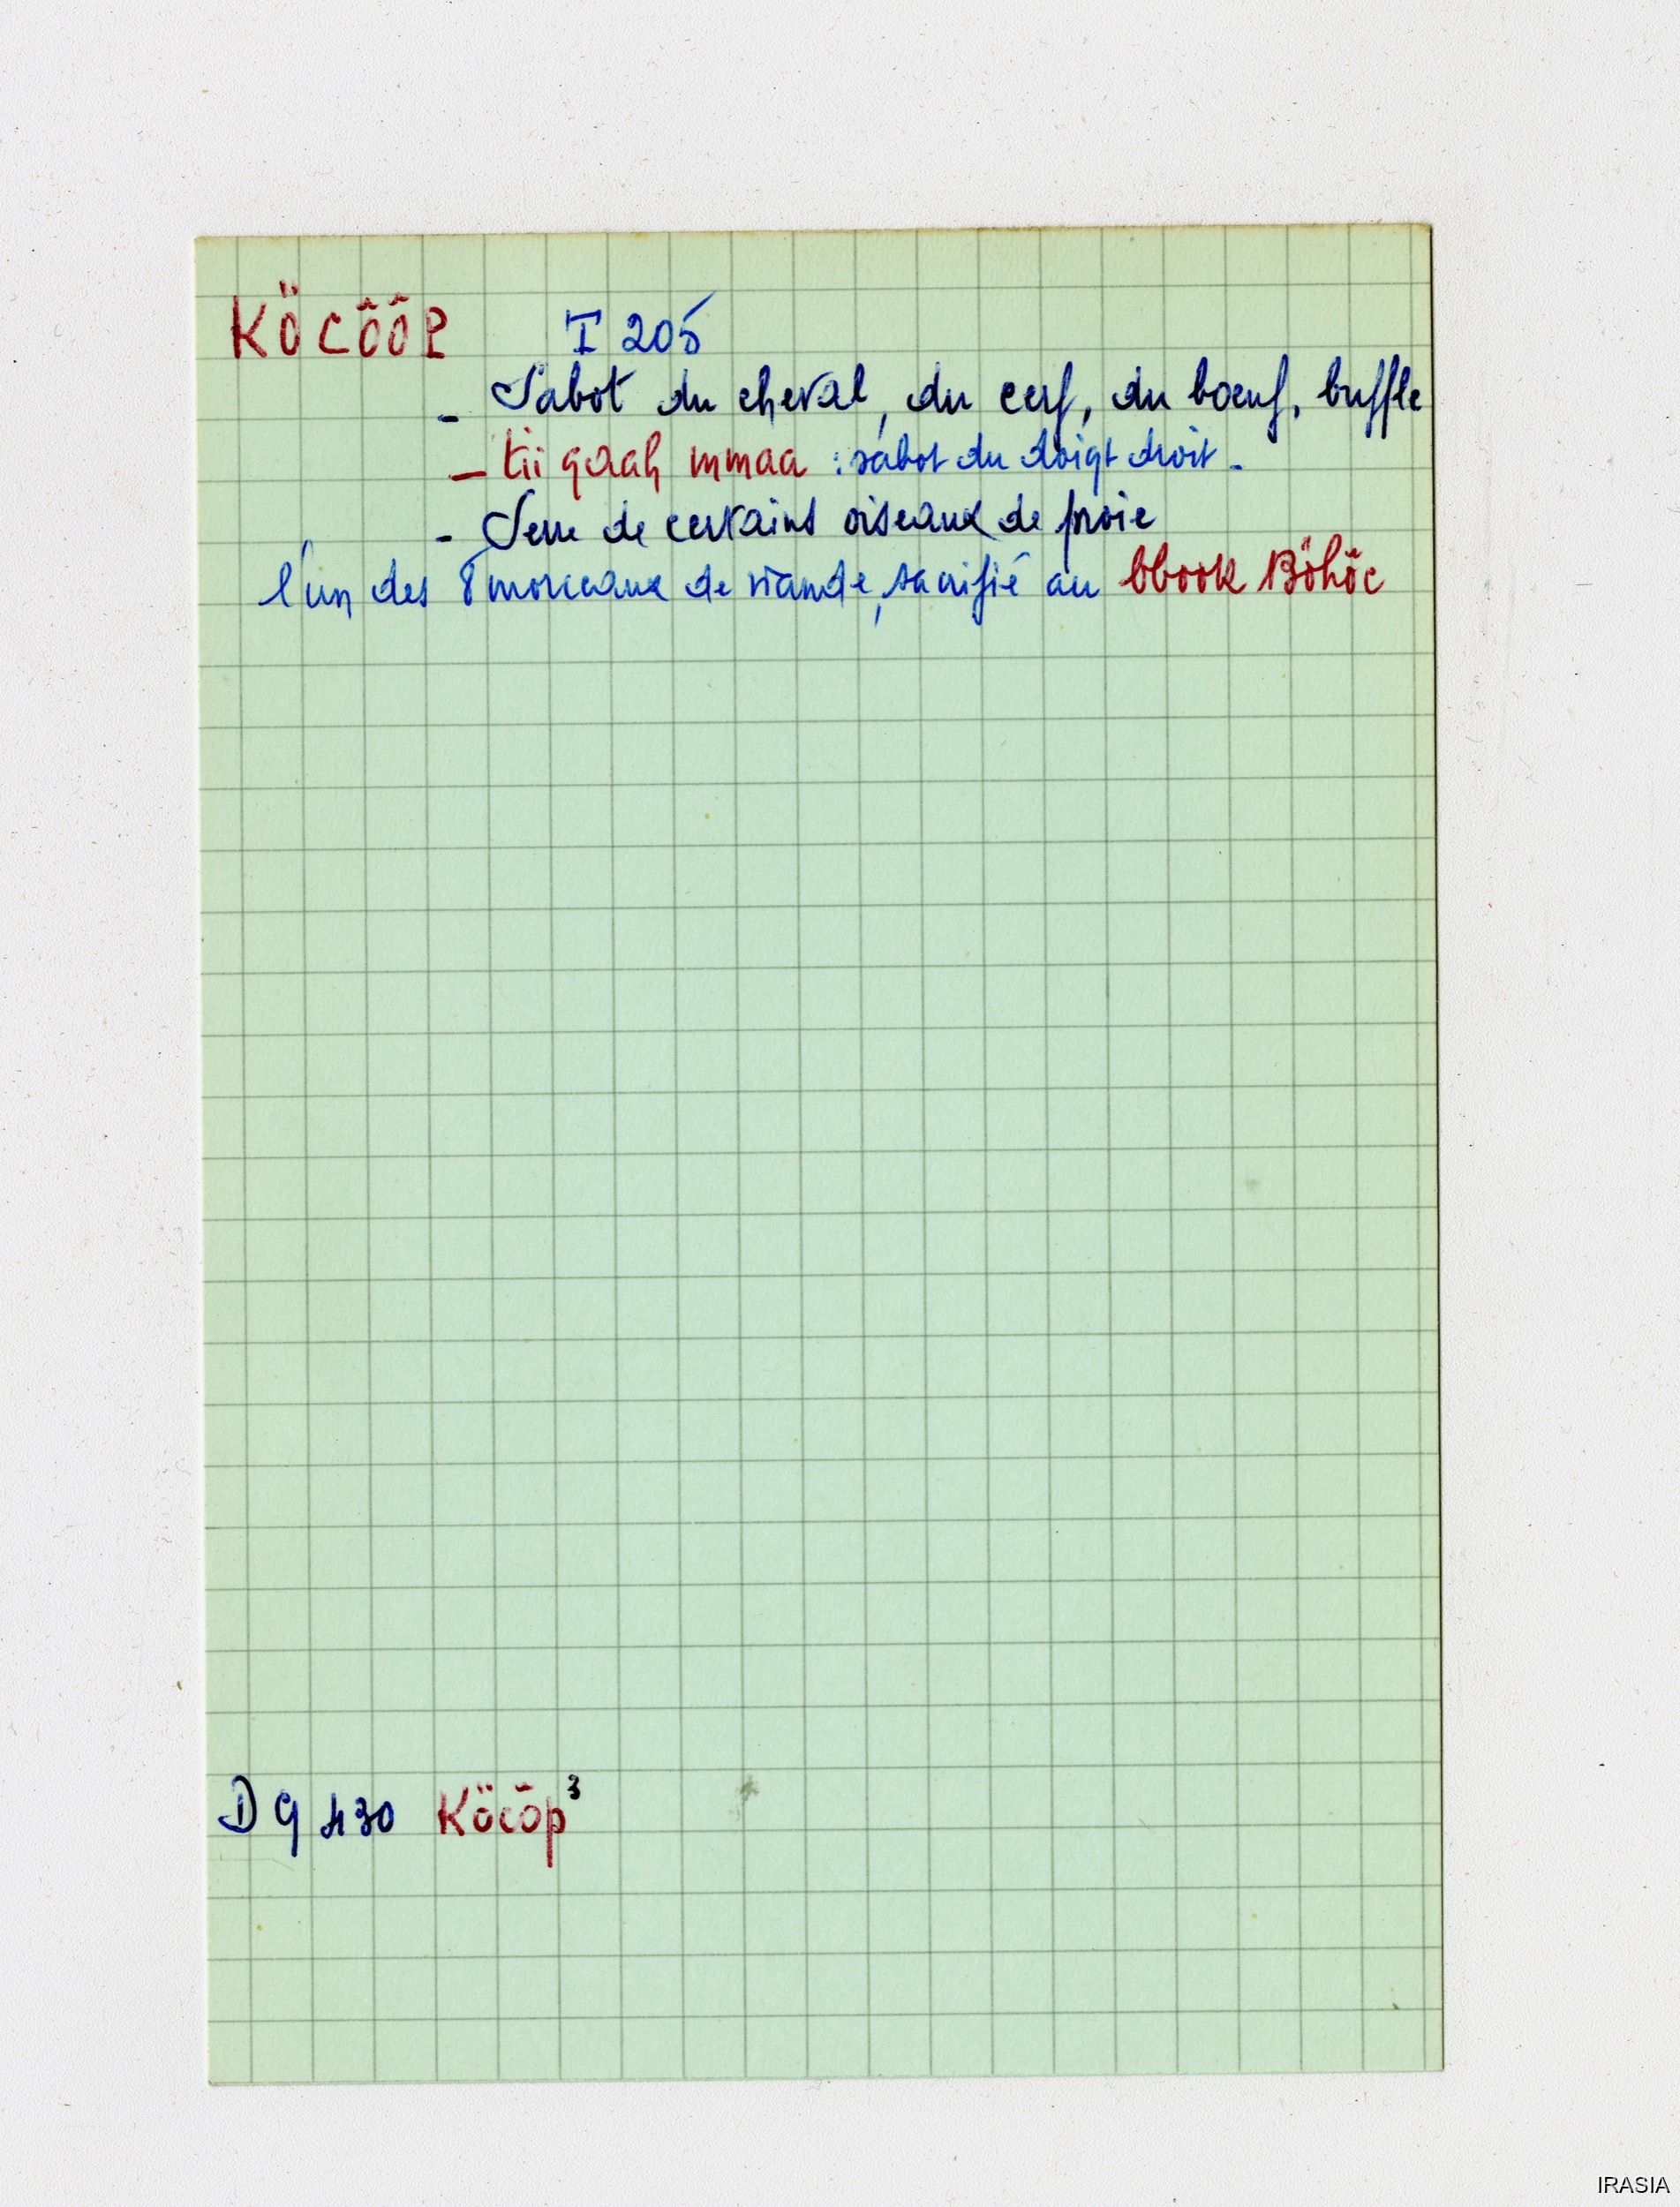 KÖCÔÔP I 205
- Sabot du cheval, du cerf, du bœuf, buffle
- tii gaah mmaa : sabot du doigt droit -
- Serre de certains oiseaux de proie
l'un des 8 morceaux de viande, sacrifié au bbook Böhöc
DG 430 Köcôp³
IRASIA